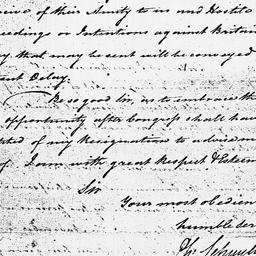 of their Amity to us and Hostile
eedings or Intentions against Britain
y that may be sent will be conveyed
Delay.
Be so good Sir, as to embrace th
opportunity after Congress shall have
ted of my Resignation to advise me
of. I am with great Respect & Esteem
Sir
Your most obedien
humble ser
Ph: Schuyl